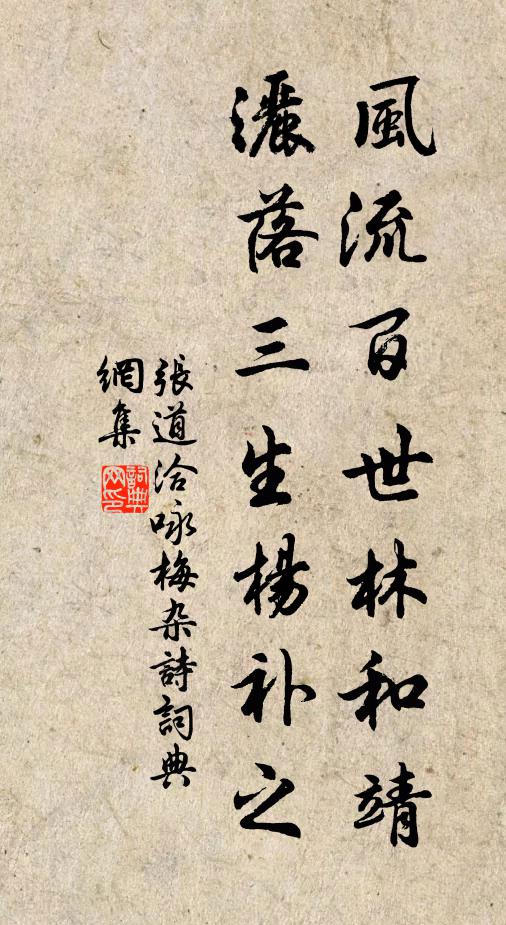 風流百世林和靖
灑落三生楊补之
張道洽咏梅杂詩詞典
網集
詞典網印